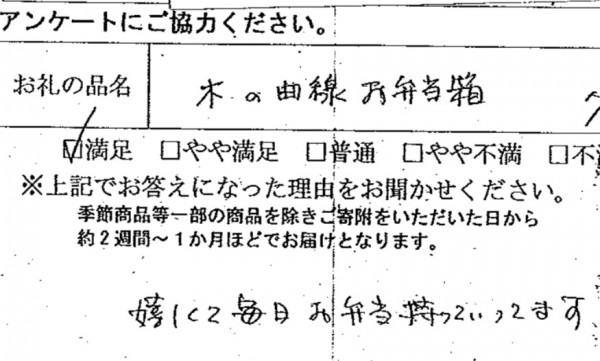 アンケートにご協力ください。
お礼の品名
木の曲線お弁当箱
☑満足 □やや満足 □普通 □やや不満 □不
※上記でお答えになった理由をお聞かせください。
季節商品等一部の商品を除きご寄附をいただいた日から
約2週間～1か月ほどでお届けとなります。
嬉しくて毎日お弁当持っていってます